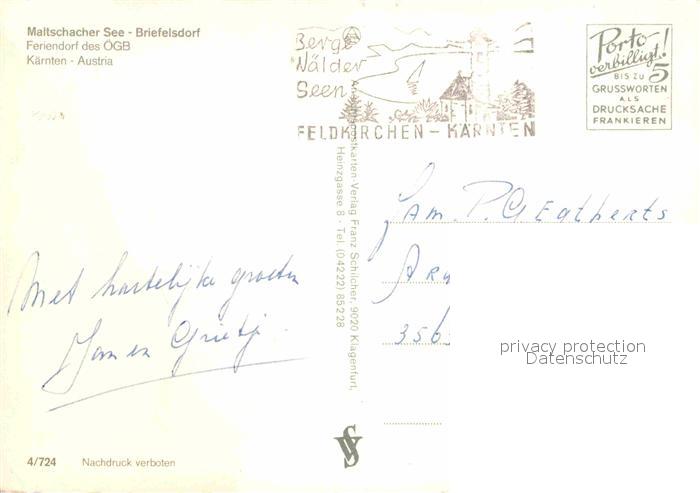 Maltschacher See - Briefelsdorf
Feriendorf des ÖGB
Kärnten - Austria
Berge
Wälder
Seen
FELDKIRCHEN - KÄRNTEN
Porto
verbilligt!
BIS ZU 5
GRUSSWORTEN
ALS
DRUCKSACHE
FRANKIEREN
Postkarten-Verlag Franz Schilcher, 9020 Klagenfurt,
Heinzgasse 8 - Tel. (04222) 85228
Fam. P.
356
privacy protection
Datenschutz
Met hartelijke groeten
Jan en Grietj
4/724 Nachdruck verboten